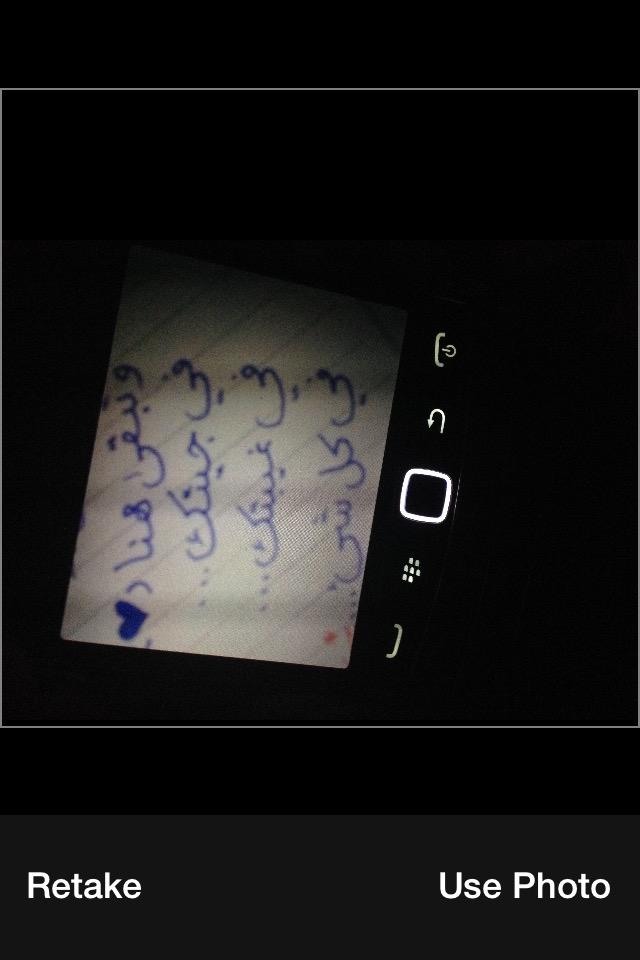 وتبقىٰ هنا ♥
في جيتك ...
في غيبتك ...
في كل شي ...
Retake
Use Photo